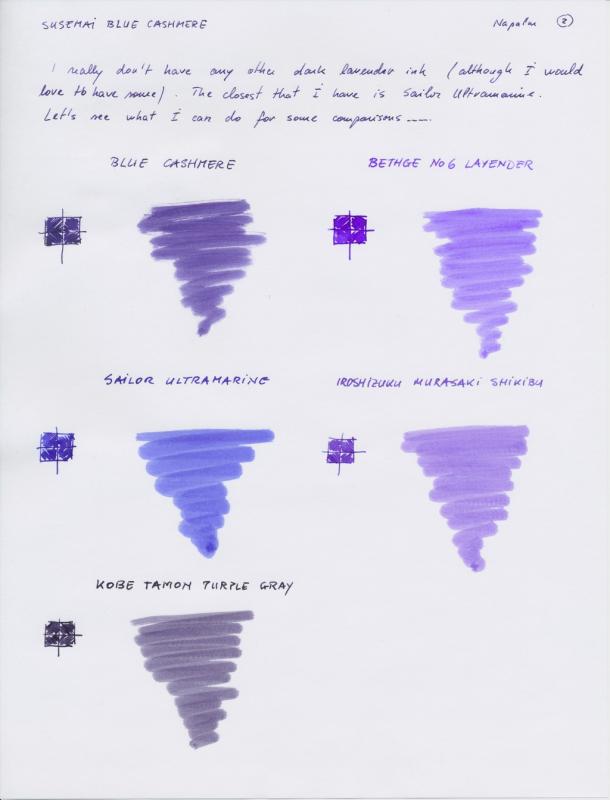 SUSEMAI BLUE CASHMERE
Napalm 2
I really don't have any other dark lavender ink (although I would
love to have some). The closest that I have is Sailor Ultramarine.
Let's see what I can do for some comparisons.....
BLUE CASHMERE
BETHGE NO 6 LAVENDER
SAILOR ULTRAMARINE
IROSHIZUKU MURASAKI SHIKIBU
KOBE TAMON PURPLE GRAY